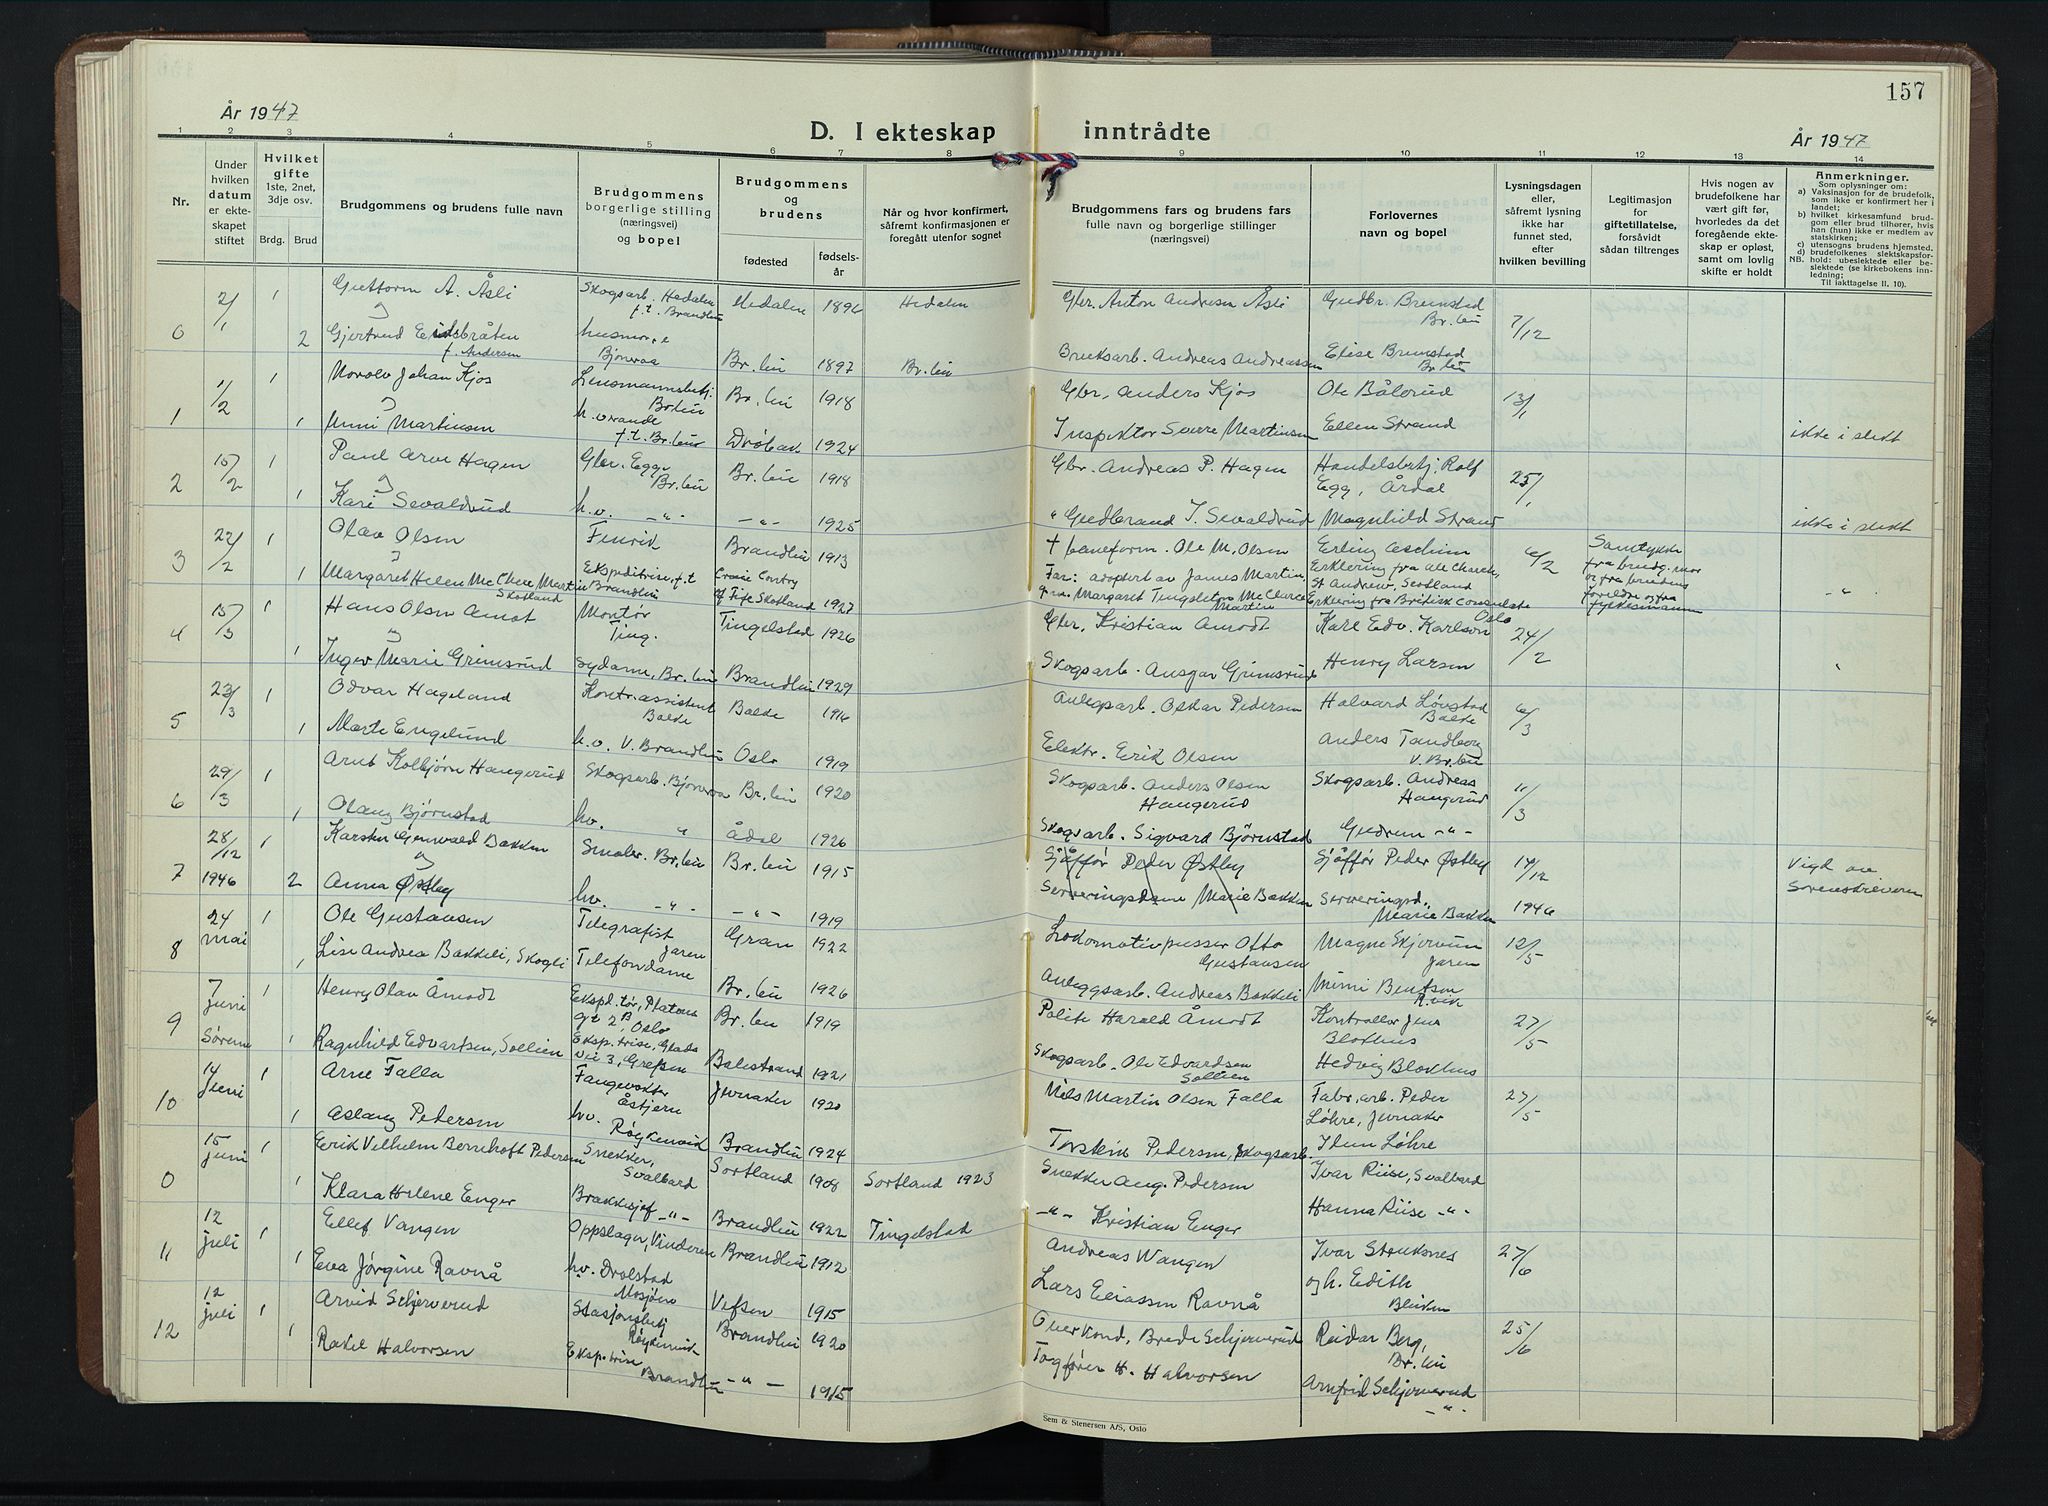 157
År 1947
D. I ekteskap inntrådte
År 1947
1 2 3 4 5 6 7 8 9 10 11 12 13 14
Nr.
Under hvilken datum er ekteskapet stiftet
Hvilket gifte
1ste, 2net, 3dje osv.
Brdg. Brud
Brudgommens og brudens fulle navn
Brudgommens borgerlige stilling (næringsvei) og bopel
Brudgommens og brudens
fødested fødselsår
Når og hvor konfirmert, såfremt konfirmasjonen er foregått utenfor sognet
Brudgommens fars og brudens fars fulle navn og borgerlige stillinger (næringsvei)
Forlovernes navn og bopel
Lysningsdagen eller, såfremt lysning ikke har funnet sted, efter hvilken bevilling
Legitimasjon for giftetillatelse, forsåvidt sådan tiltrenges
Hvis nogen av brudefolkene har vært gift før, hvorledes da det foregående ekteskap er opløst, samt om lovlig skifte er holdt
Anmerkninger.
Som oplysninger om:
a) Vaksinasjon for de brudefolk, som ikke er konfirmert her i landet;
b) hvilket kirkesamfund brudgom eller brud tilhører, hvis han (hun) ikke er medlem av statskirken;
c) utensogns brudens hjemsted.
d) brudefolkenes slektskapsforhold: ubeslektede eller beslektede (se kirkebokens innledning;
NB. Til iakttagelse II. 10).
0 2/1 1 Guttorm A. Åsli Skogsarb. Hedalen f.t. Brandbu Hedalen 1896 Hedalen Gbr. Anton Andresen Åsli Gudbr. Brunstad Br.bu 7/12
2 Gjertrud Eidsbråten f. Andersen husmor Bjoneroa Br.bu 1897 Br.bu Bruksarb. Andreas Andreassen Elise Brunstad Br.bu
1 1/2 1 Johan Kjos Lensmannsbetj. Br.bu Br.bu 1918 Gbr. Anders Kjos Ole Bålerud 13/1
1 Unni Martinsen h.v. f.t. Br.bu Drøbak 1924 Inspektør Sverre Martinsen Ellen Strand ikke i slekt
2 15/2 1 Paul Arve Hagen Gbr. Egge Br.bu Br.bu 1918 Gbr. Andreas P. Hagen Handelsbetj. Rolf Egg, Årdal 25/1
1 Kari Sevaldrud h.v. -"- -"- 1925 " Gudbrand J. Sevaldrud Magnhild Strand ikke i slekt
3 22/2 1 Olav Olsen Fenrik Brandbu 1913 † baneform. Ole M. Olsen Erling Aschim 6/2 Samtykke fra brudg. mor og fra brudens foreldre og fra fylkesmann
1 Margaret Helen Mc Clure Martin Skotland Ekspeditrise, f.t. Brandbu of Fife Skotland 1927 Far: adoptert av James Martin, Margaret Mc Clure Martin Erklering fra St Andrew, Scotland Erklering fra British Consulate Oslo -"-
4 15/3 1 Hans Olsen Amot Montør Ting. Tingelstad 1926 Gbr. Kristian Amodt Karl Edv. Karlson 24/2
1 Inger Marie Grimsrud Sydame, Br.bu Brandbu 1929 Skogsarb. Ansgar Grimsrud Henry Larsen "
5 23/3 1 Odvar Hageland Kontr.assistent Balke Balke 1916 Anlegsarb. Oskar Pedersen Halvard Løvstad Balke 6/3
1 Marte Engelund h.v. V. Brandbu Oslo 1919 Elektr. Erik Olsen Anders Tandberg V. Br.bu
6 29/3 1 Arnt Kolbjørn Hangerud Skogsarb. Bjoneroa Br.bu 1920 Skogsarb. Anders Olsen Hangerud Skogsarb. Andreas Hangerud 11/3
1 Olaug Bjørnstad hv. " Ådal 1926 Skogsarb. Sigvard Bjørnstad Gudrun -"-
7 28/12 1946 1 Karsten Gunvald Bakken Smaler. Br.bu Br.bu 1915 Sjåfør Peder Østby Sjåfør Peder Østby 17/12 Vigd av Sorenskriveren
2 Anna Østby hv. -"- -"- 1919 Serveringsdame Marie Bakken Serveringsd. Marie Bakken 1946
8 24 mai 1 Ole Gustavsen Telegrafist Jaren Gran 1922 Lokomotivpusser Otto Gustavsen Magne Skjervum Jaren 12/5
1 Lise Andrea Bakkeli, Skogli Telefondame Br.bu 1926 Anleggsarb. Andreas Bakkeli Mimi Bentsen R.vik
9 7 juni Sørum 1 Henry Olav Åmodt Ekspd.tør, Platous gt 2B, Oslo Br.bu 1919 Politi Harald Åmodt Kontrollør Jens Blokhus 27/5
1 Ragnhild Edvartsen, Sollien Eksp.trise, Glads vei 3, Grefsen Balestrand 1921 Skogsarb. Ole Edvardsen Sollien Hedvig Blokhus
10 14 juni 1 Arne Falla Fangevokter Åstjern Jevnaker 1920 Nils Martin Olsen Falla Fabr.arb. Peder Løhre, Jevnaker 27/5
1 Aslaug Pedersen hv. Røykenvik Brandbu 1924 Torstein Pedersen, skogsarb. Idun Løhre
0 15 juni 1 Erik Vilhelm Bernhoft Pedersen Snekker, Svalbard Sortland 1908 Sortland 1923 Snekker Aug. Pedersen Ivar Riise, Svalbard
1 Klara Helene Enger Brakkesjef -"- Brandbu 1922 Tingelstad -"- Kristian Enger Hanna Riise -"-
11 12 juli 1 Ellef Vangen Oppslager, Vinderen Brandbu 1912 Andreas Wangen Ivar Stenksnes 27/6
1 Eva Jørgine Ravnå hv. Drolstad Mosjøen Vefsen 1915 Lars Eliassen Ravnå og h. Edith Blikken
12 12 juli 1 Arvid Schjerverud Stasjonsbetj Røykenvik Brandbu 1920 Brede Schjerverud Reidar Berg, Br.bu 25/6
1 Rakel Halvorsen Eksp.trise Brandbu -"- 1915 Togfører H. Halvorsen Arnfrid Schjerverud -"-
Sem & Stenersen A/S, Oslo